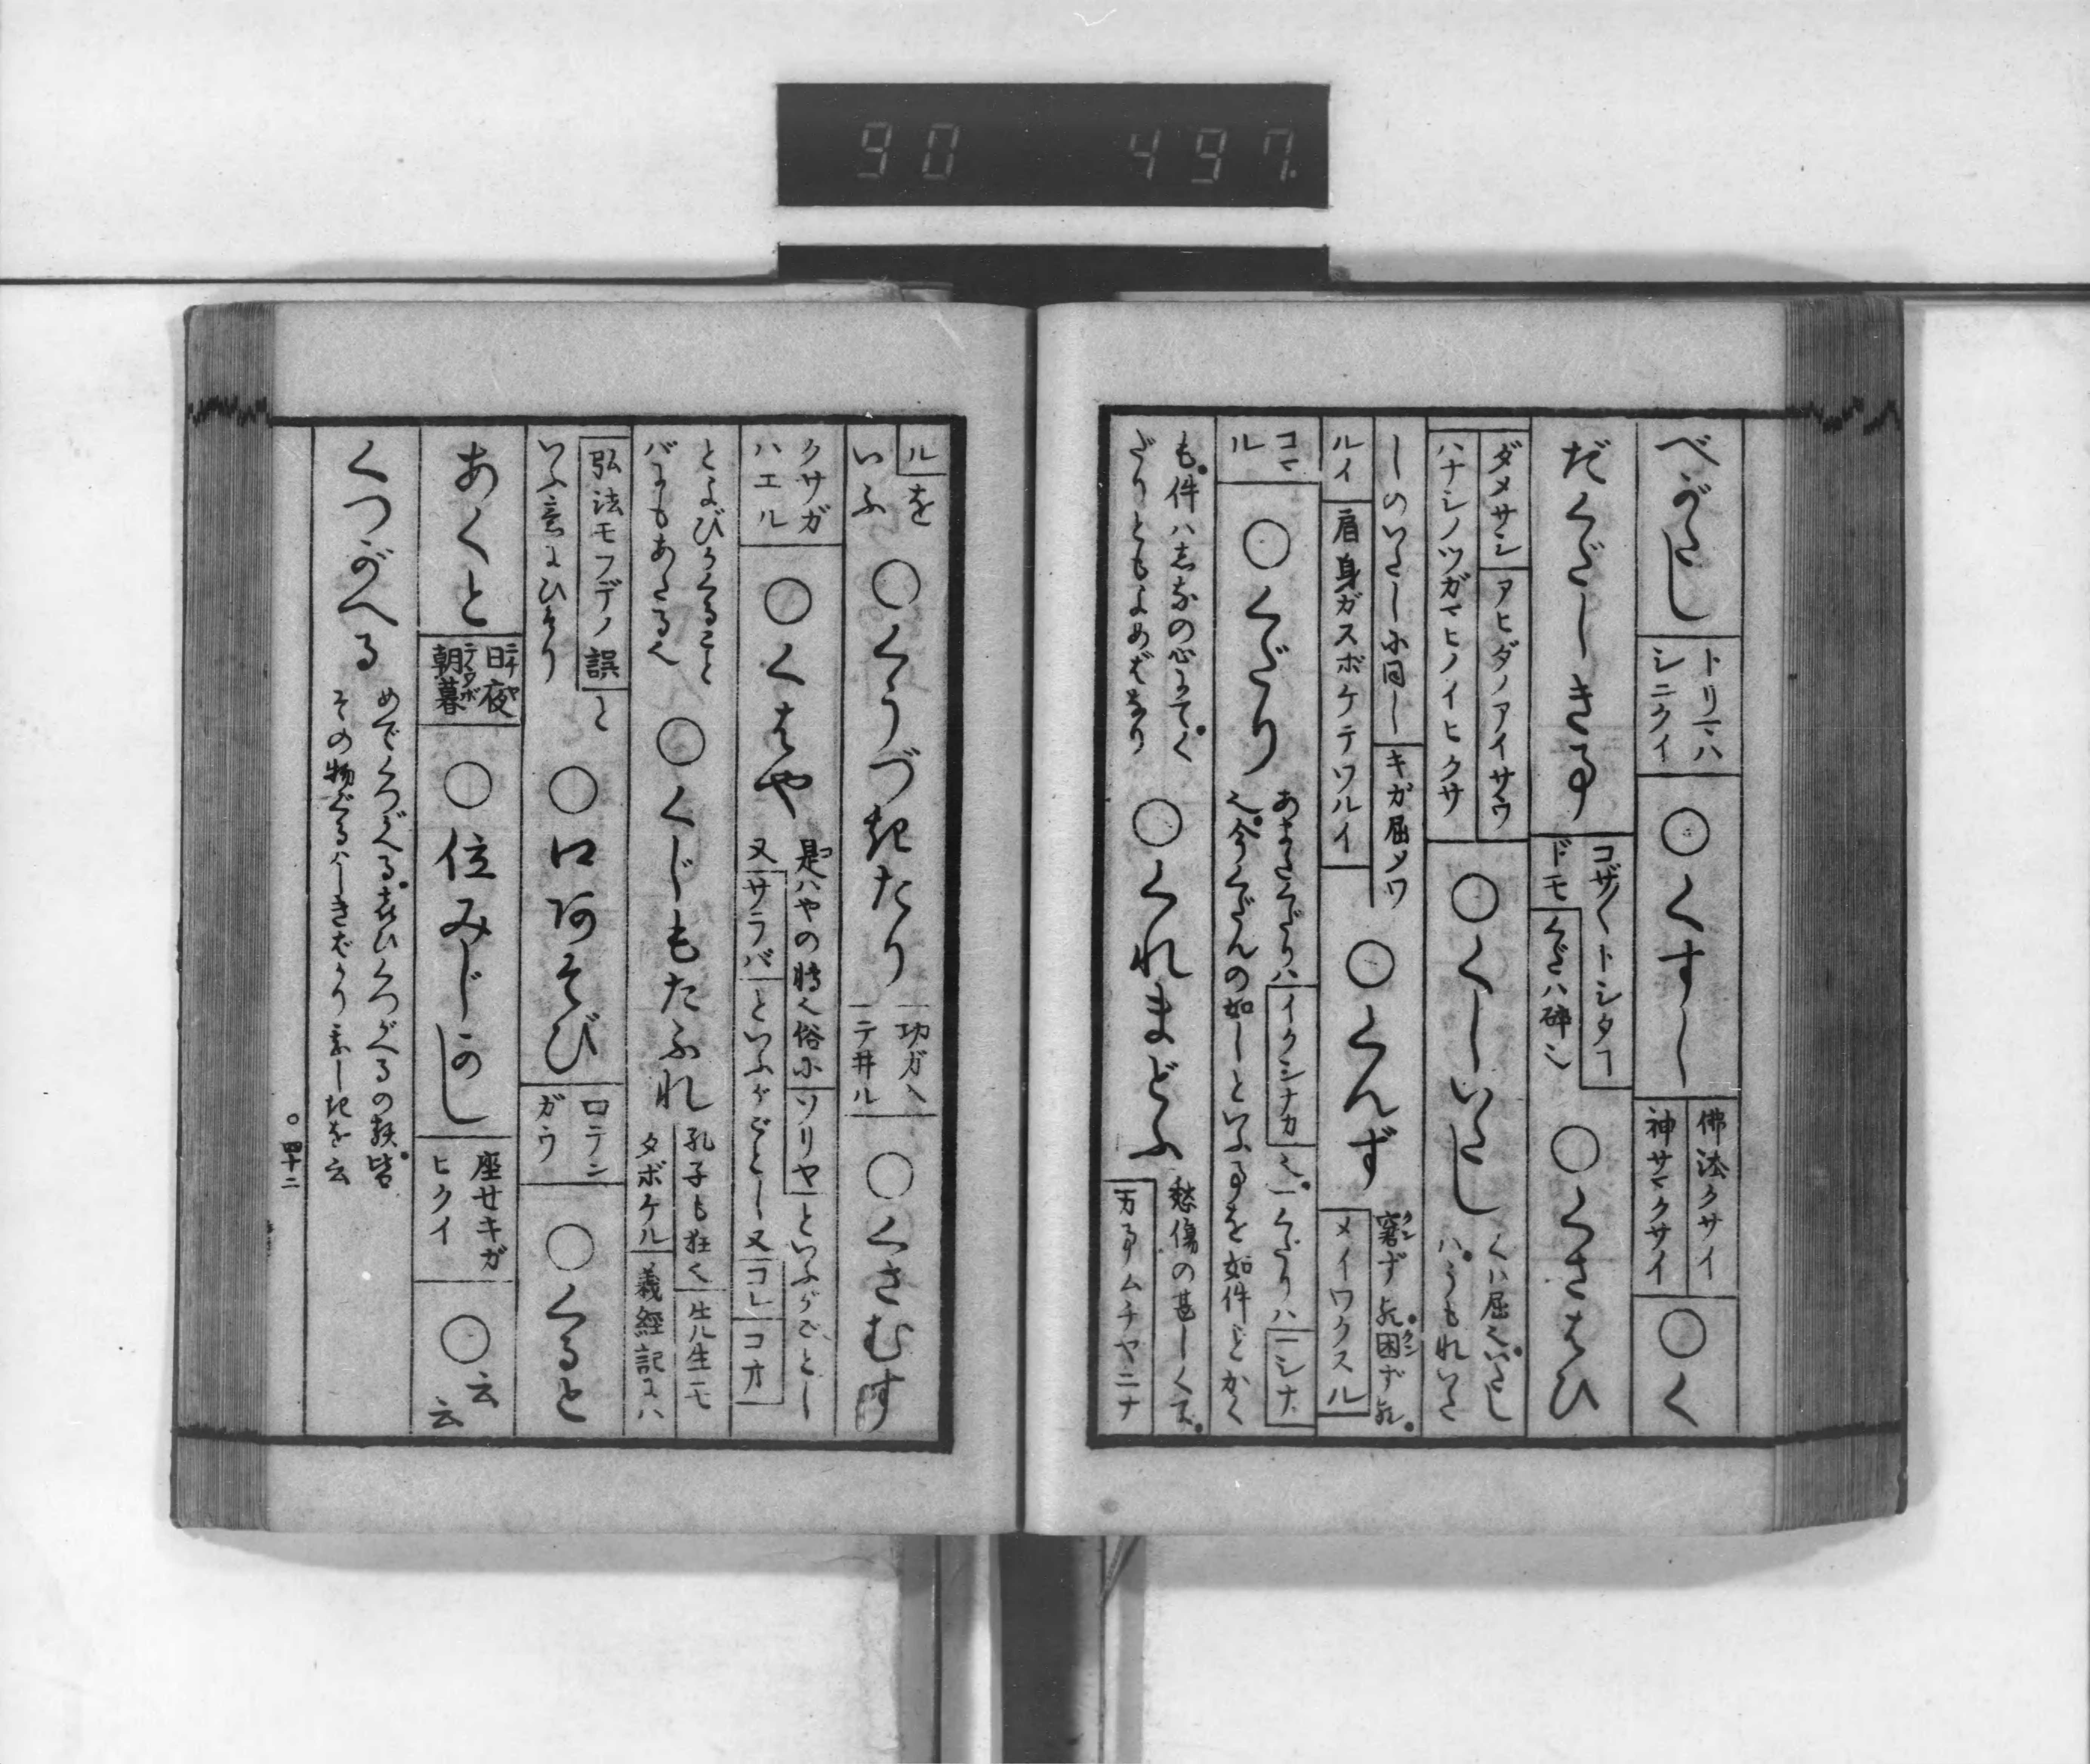 90 497.
べがたし
トリマハ
シニクイ
○くすし
佛法クサイ
神サマクサイ
○く
だくだしき事
コザ〳〵トシタコ
ドモ
くだハ碎シ
○くさはひ
ダメサシ
アヒダノアイサウ
ハナシノツガマヒノイヒクサ
○くしいたし
くハ屈也いたし
ハうもれいた
しのいたしに同し
キガ屈メワ
ルイ
肩身ガスボケテワルイ
○くんず
窘ず又困ず也
メイワクスル
コマ
ル
○くだり
あまたくだりハ
イクシナカ
也一くだりハ
一シナ
也今くだんの如しといふ事を如件とかく
も件ハ志なの心にてく
だりともよめばなり
○くれまどふ
愁傷の甚しく不
万事ムチヤニナ
ル
を
いふ
○くうづきたり
功ガヘ
テ井ル
○くさむす
クサガ
ハエル
○くはや
是ハやの時也俗に
ソリヤ
といふがごとし
又
サラバ
といふがごとし又
コレコヽ
とよびかくること
バにもあたる也
○くじもたふれ
孔子も狂く
生ル生モ
タボケル
義経記にハ
弘法モフデノ誤
と
いふ意にひけり
○口あそび
口テン
ガウ
○くると
あくと
日夜
朝暮
○位みじかし
座セキガ
ヒクイ
○云
云
くつがへる
めでくつがへる喜ひくつがへるの類皆
その物ぐるハしきばかり赤しきを云
○四十二